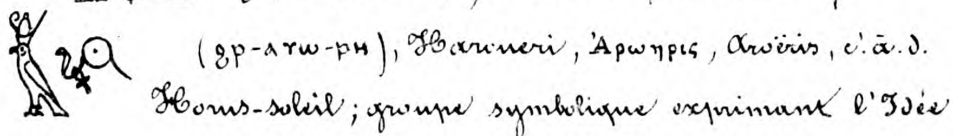 (ϩⲣ-ⲁⲩⲱ-ⲣⲏ), Haroueri, Ἀρωηρις, Aroëris, c'. à. d.
Horus-soleil; groupe symbolique exprimant l'Idée